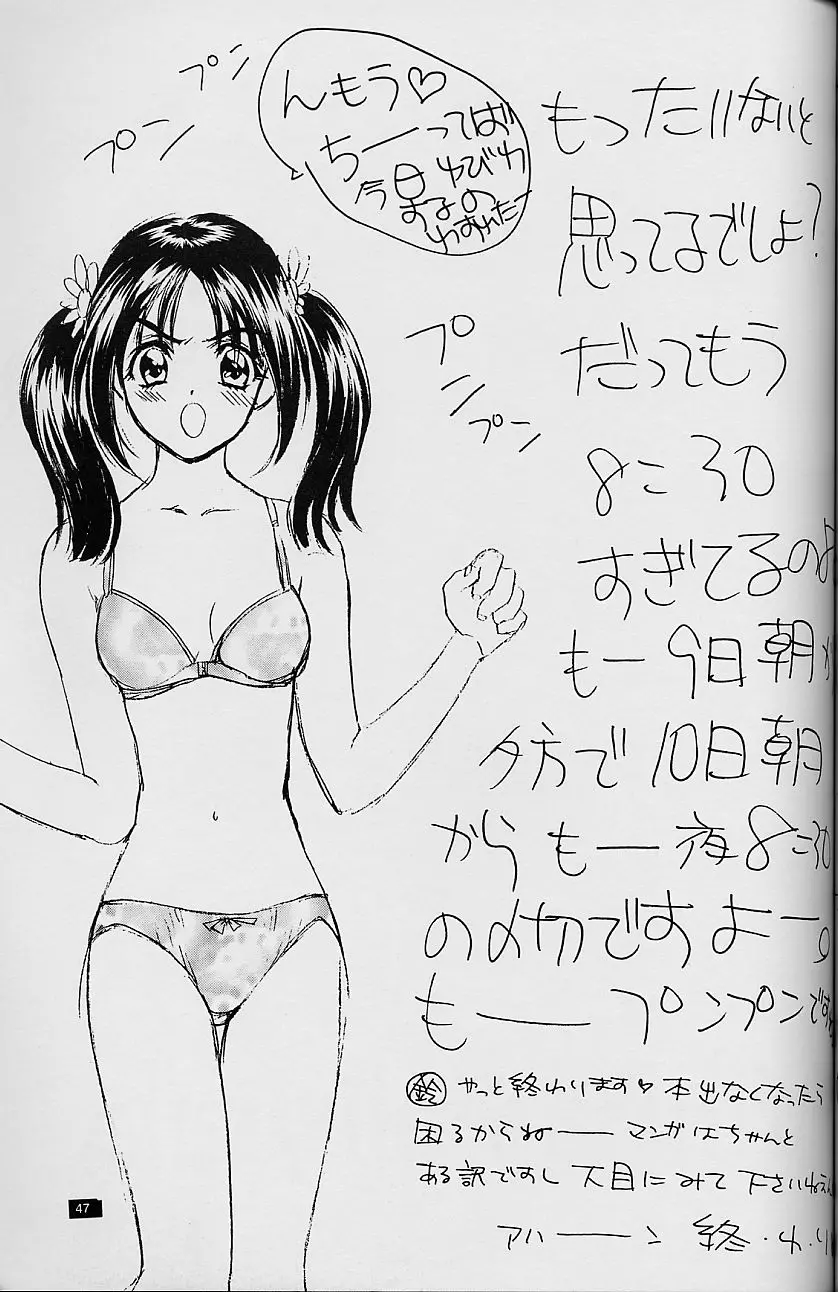 プン
プン
んもう♡
ちーってば
今日ゆびわ
するの
わすれたー
プン
プン
もったいないと
思ってるでしょ?
だってもう
8:30
すぎてるのよ
もー9日朝
夕方で10日朝
からもー夜8:30
の〆切ですよー。
もープンプンです
㊍
やっと終わります♡本出なくなったら
困るからねーマンガはちゃんと
ある訳ですし大目にみて下さいねえ
アハーン 終.わ.り
47